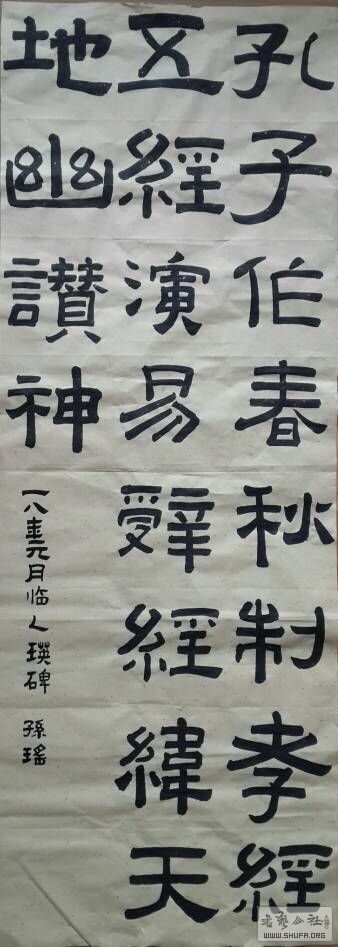 孔子作春秋制孝經
五經演易辤經緯天
地幽讚神
一八年元月临乙瑛碑 孫瑤
书艺公社
WWW.SHUFA.ORG